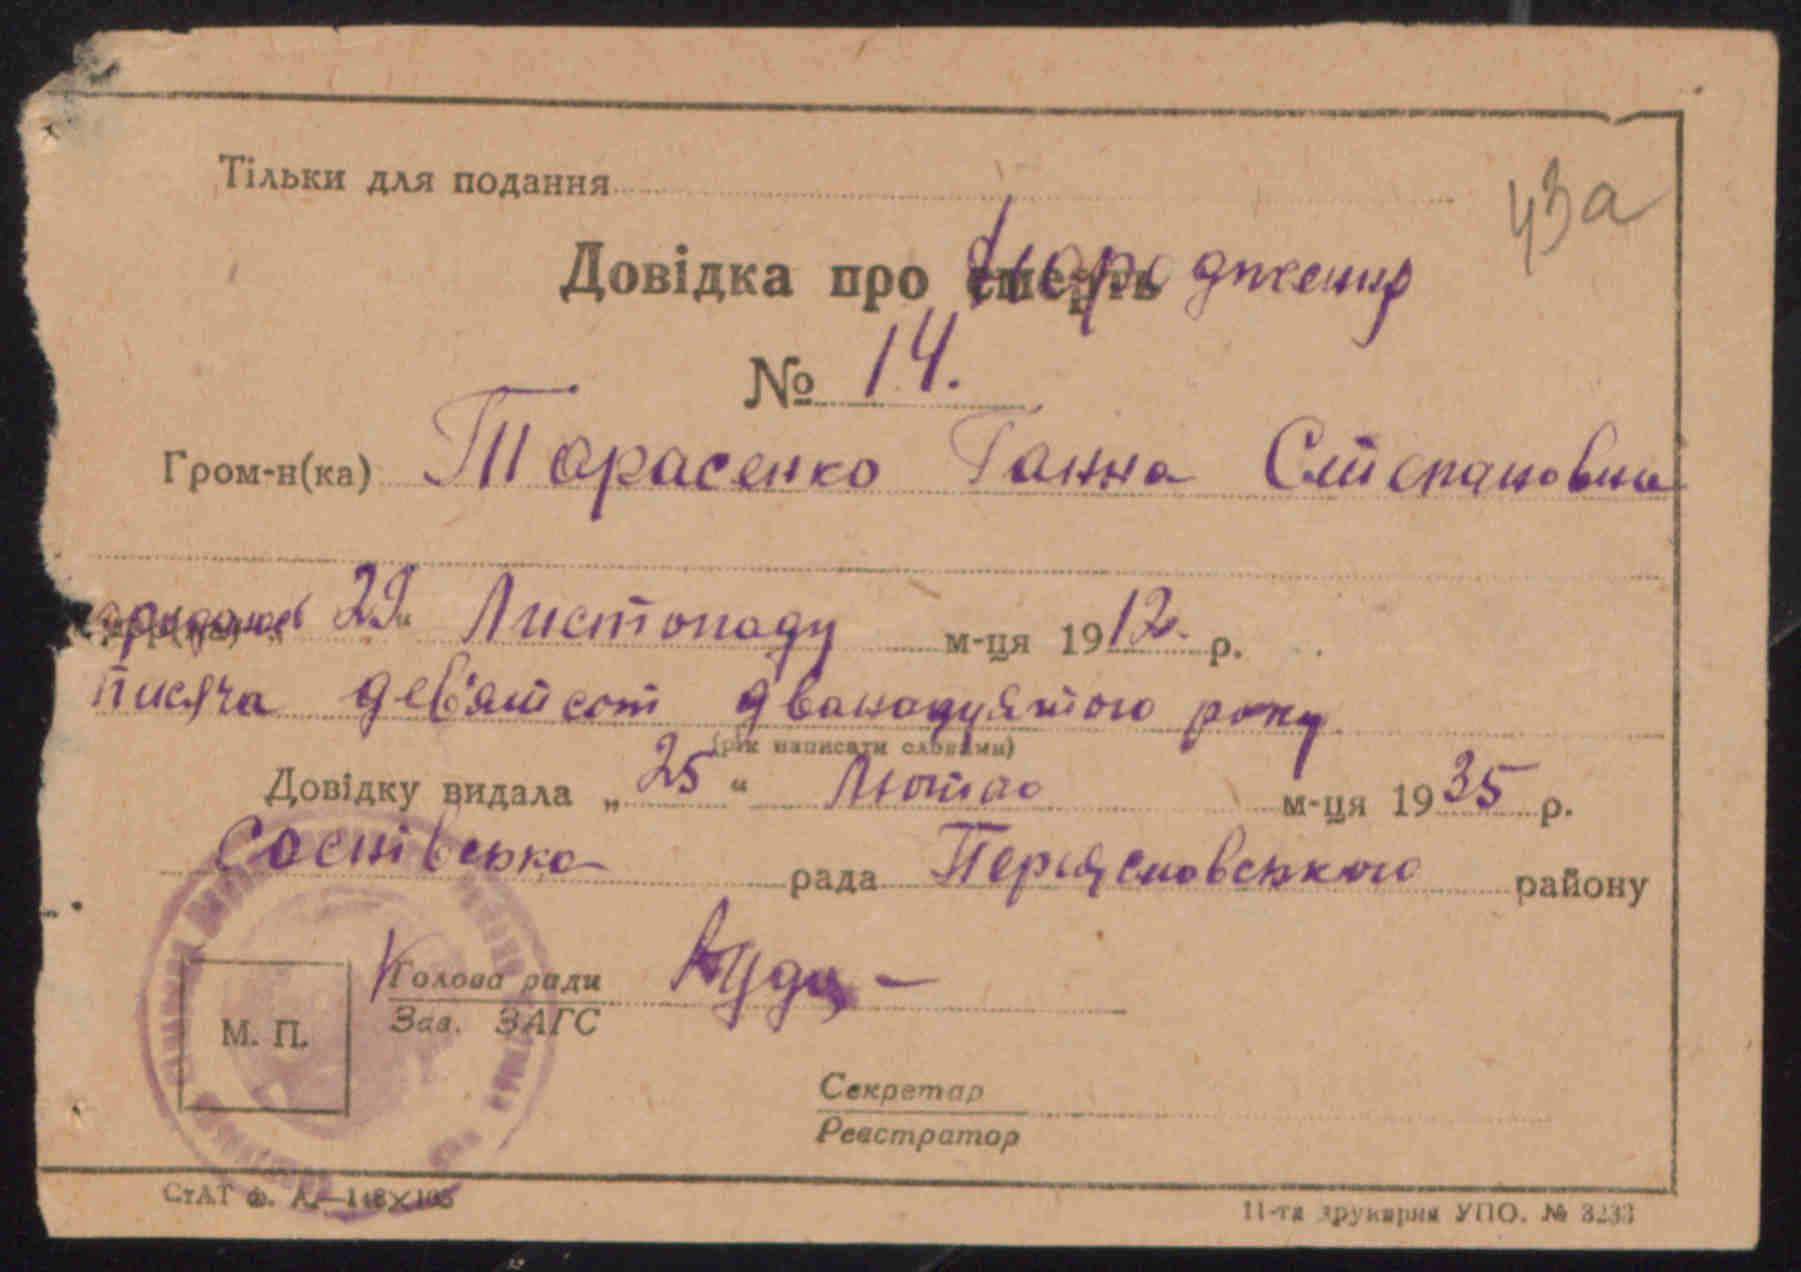 Тільки для подання
43а
Довідка про смерть народження
№ 14.
Гром-н(ка) Тарасенко Ганна Степановна
29 " Листопаду м-ця 1912 р.
тисяча дев'ятсот дванадцятого року
(рік написати словами)
Довідку видала „ 25 " Лютого м-ця 1935 р.
Соснівська рада Переясловського району
Голова ради
Зав. ЗАГС
М. П.
Секретар
Реєстратор
СтАТ ф. А—148×105
11-та друкарня УПО. № 3233